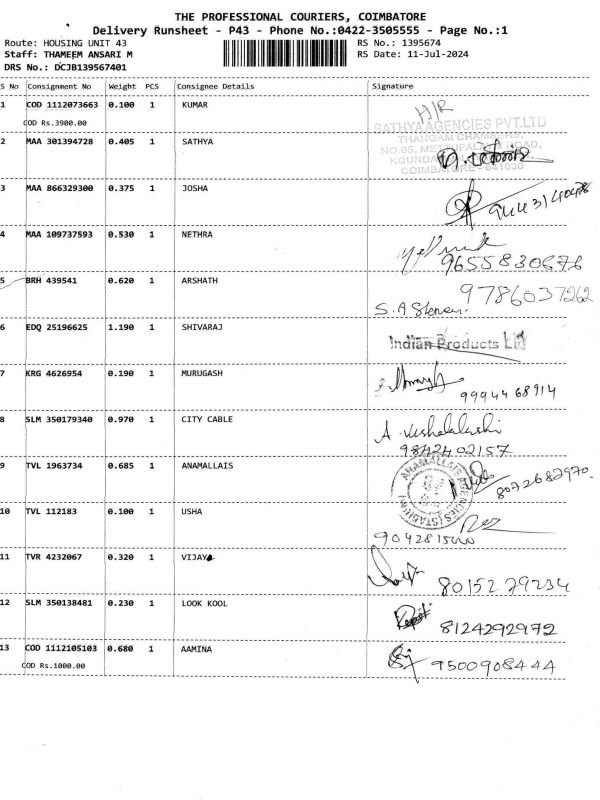 THE PROFESSIONAL COURIERS, COIMBATORE
Delivery Runsheet - P43 - Phone No.:0422-3505555 - Page No.:1
Route: HOUSING UNIT 43 RS No.: 1395674
Staff: THAMEEM ANSARI M RS Date: 11-Jul-2024
DRS No.: DCJB139567401
S No Consignment No Weight PCS Consignee Details Signature
1 COD 1112073663 0.100 1 KUMAR H/R
COD Rs.3900.00
SATHYA AGENCIES PVT.LTD
THANGAM CHAMBERS,
2 MAA 301394728 0.405 1 SATHYA
NO.05, METTUPALAYAM ROAD,
COIMBATORE - 641030
3 MAA 866329300 0.375 1 JOSHA
4 MAA 109737593 0.530 1 NETHRA
9655830676
5 BRH 439541 0.620 1 ARSHATH 9786037262
6 EDQ 25196625 1.190 1 SHIVARAJ
Indian Products Ltd
7 KRG 4626954 0.190 1 MURUGASH
9994468914
8 SLM 350179340 0.970 1 CITY CABLE
9842402157
9 TVL 1963734 0.685 1 ANAMALLAIS ANAMALLAIS AGENCIES
8072682970
10 TVL 112183 0.100 1 USHA
11 TVR 4232067 0.320 1 VIJAYA
8015279234
12 SLM 350138481 0.230 1 LOOK KOOL
8124292972
13 COD 1112105103 0.680 1 AAMINA 9500908444
COD Rs.1000.00